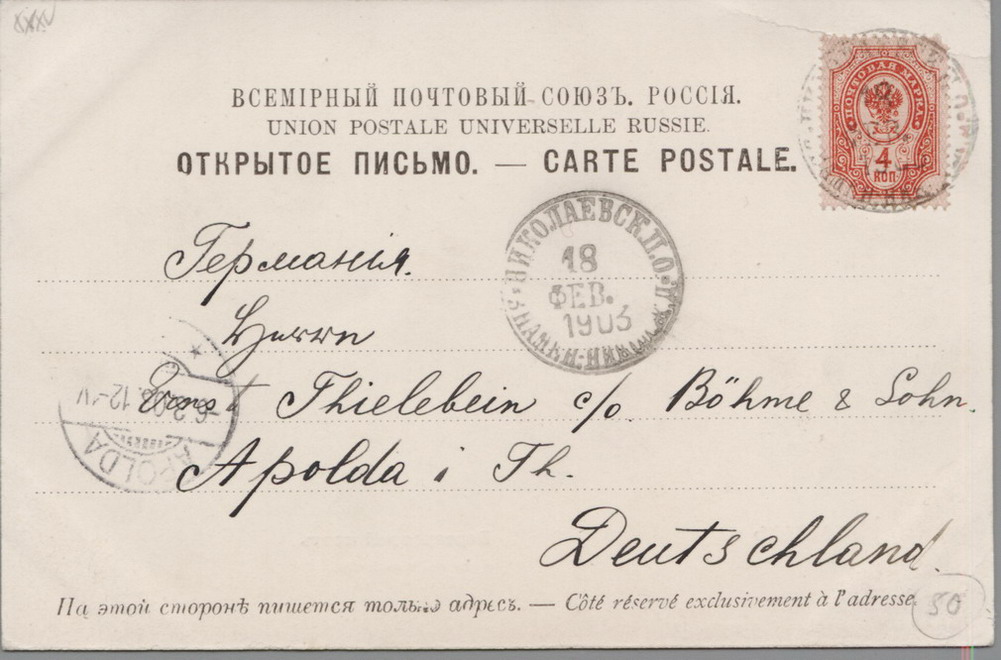 XXXV
ВСЕМІРНЫЙ ПОЧТОВЫЙ СОЮЗЪ. РОССІЯ.
UNION POSTALE UNIVERSELLE RUSSIE.
ОТКРЫТОЕ ПИСЬМО. — CARTE POSTALE.
ПОЧТОВАЯ МАРКА
4
КОП
НИКОЛАЕВСК.П.О.
18
ФЕВ.
1903
Германія.
Herrn
Ernst Thielebein c/o. Böhme & Sohn.
Apolda i Th.
Deutschland.
APOLDA
На этой сторонѣ пишется только адресъ. — Côté réservé exclusivement à l'adresse.
50